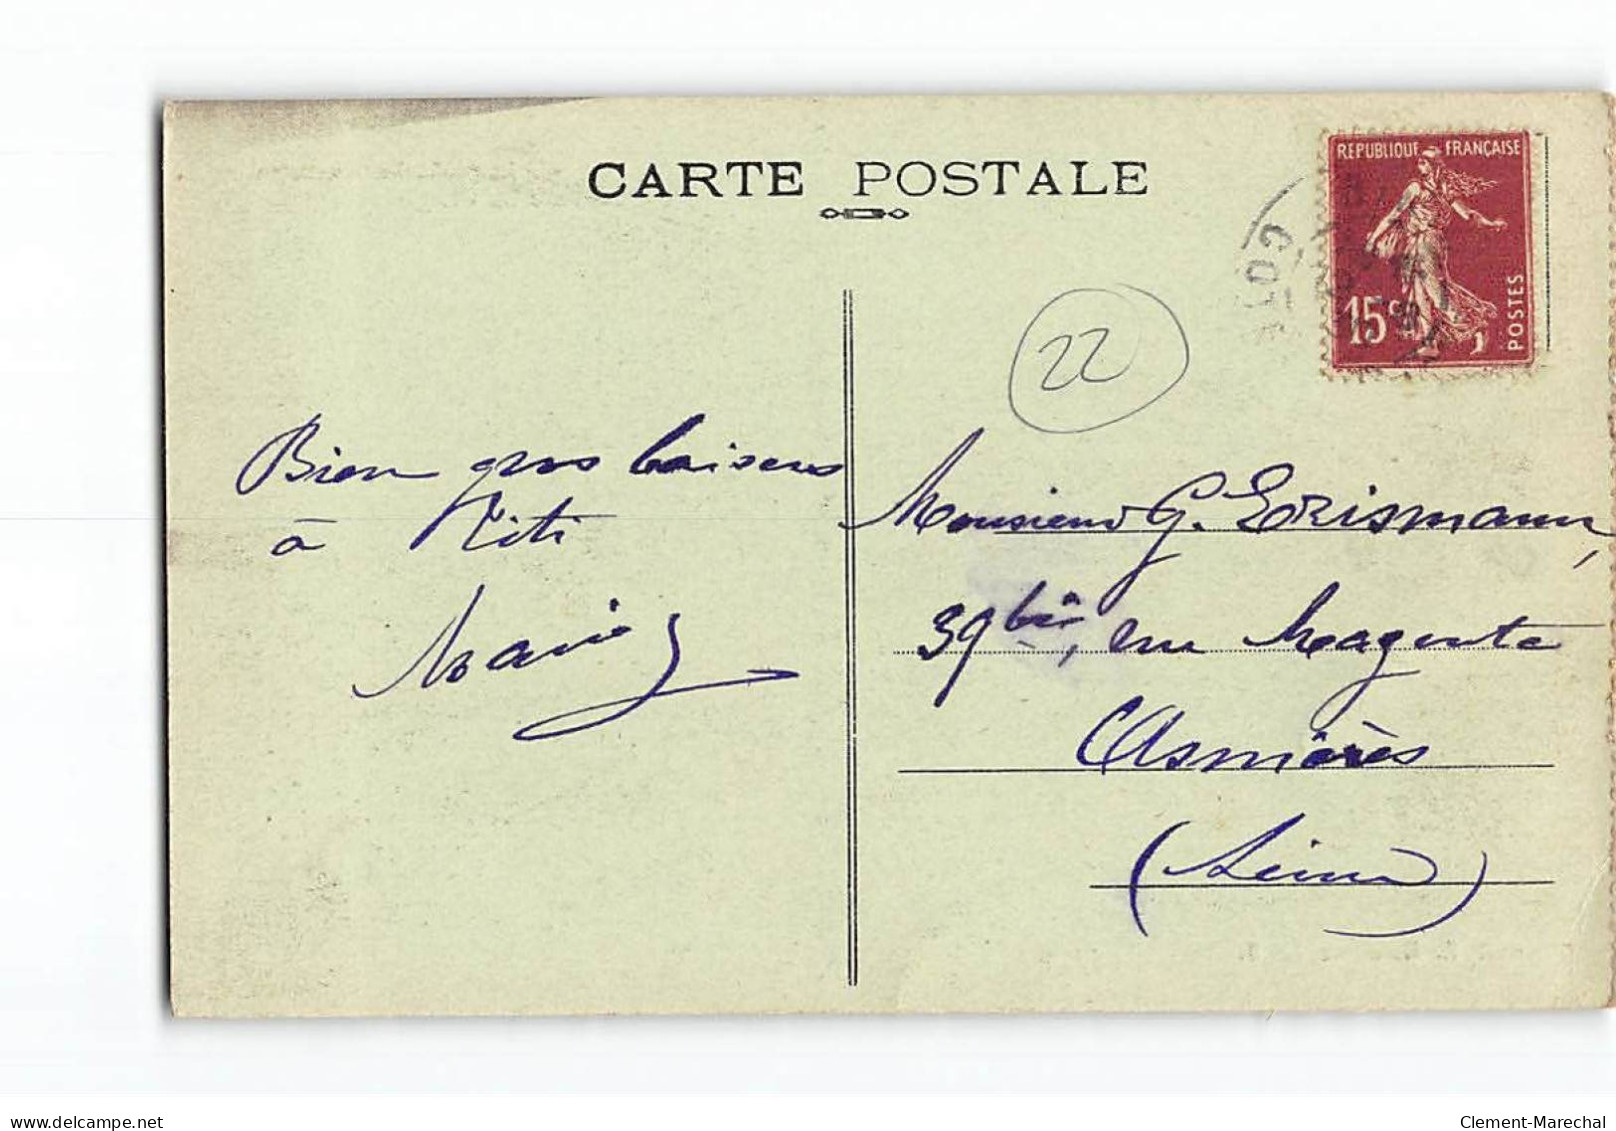 CARTE POSTALE
REPUBLIQUE FRANÇAISE
15c
POSTES
COTE
22
Bien gros baisers
à Kiti
Marie
Monsieur G. Erismann,
39 bis, rue Magenta
Asnières
(Seine)
delcampe.net
Clement-Marechal